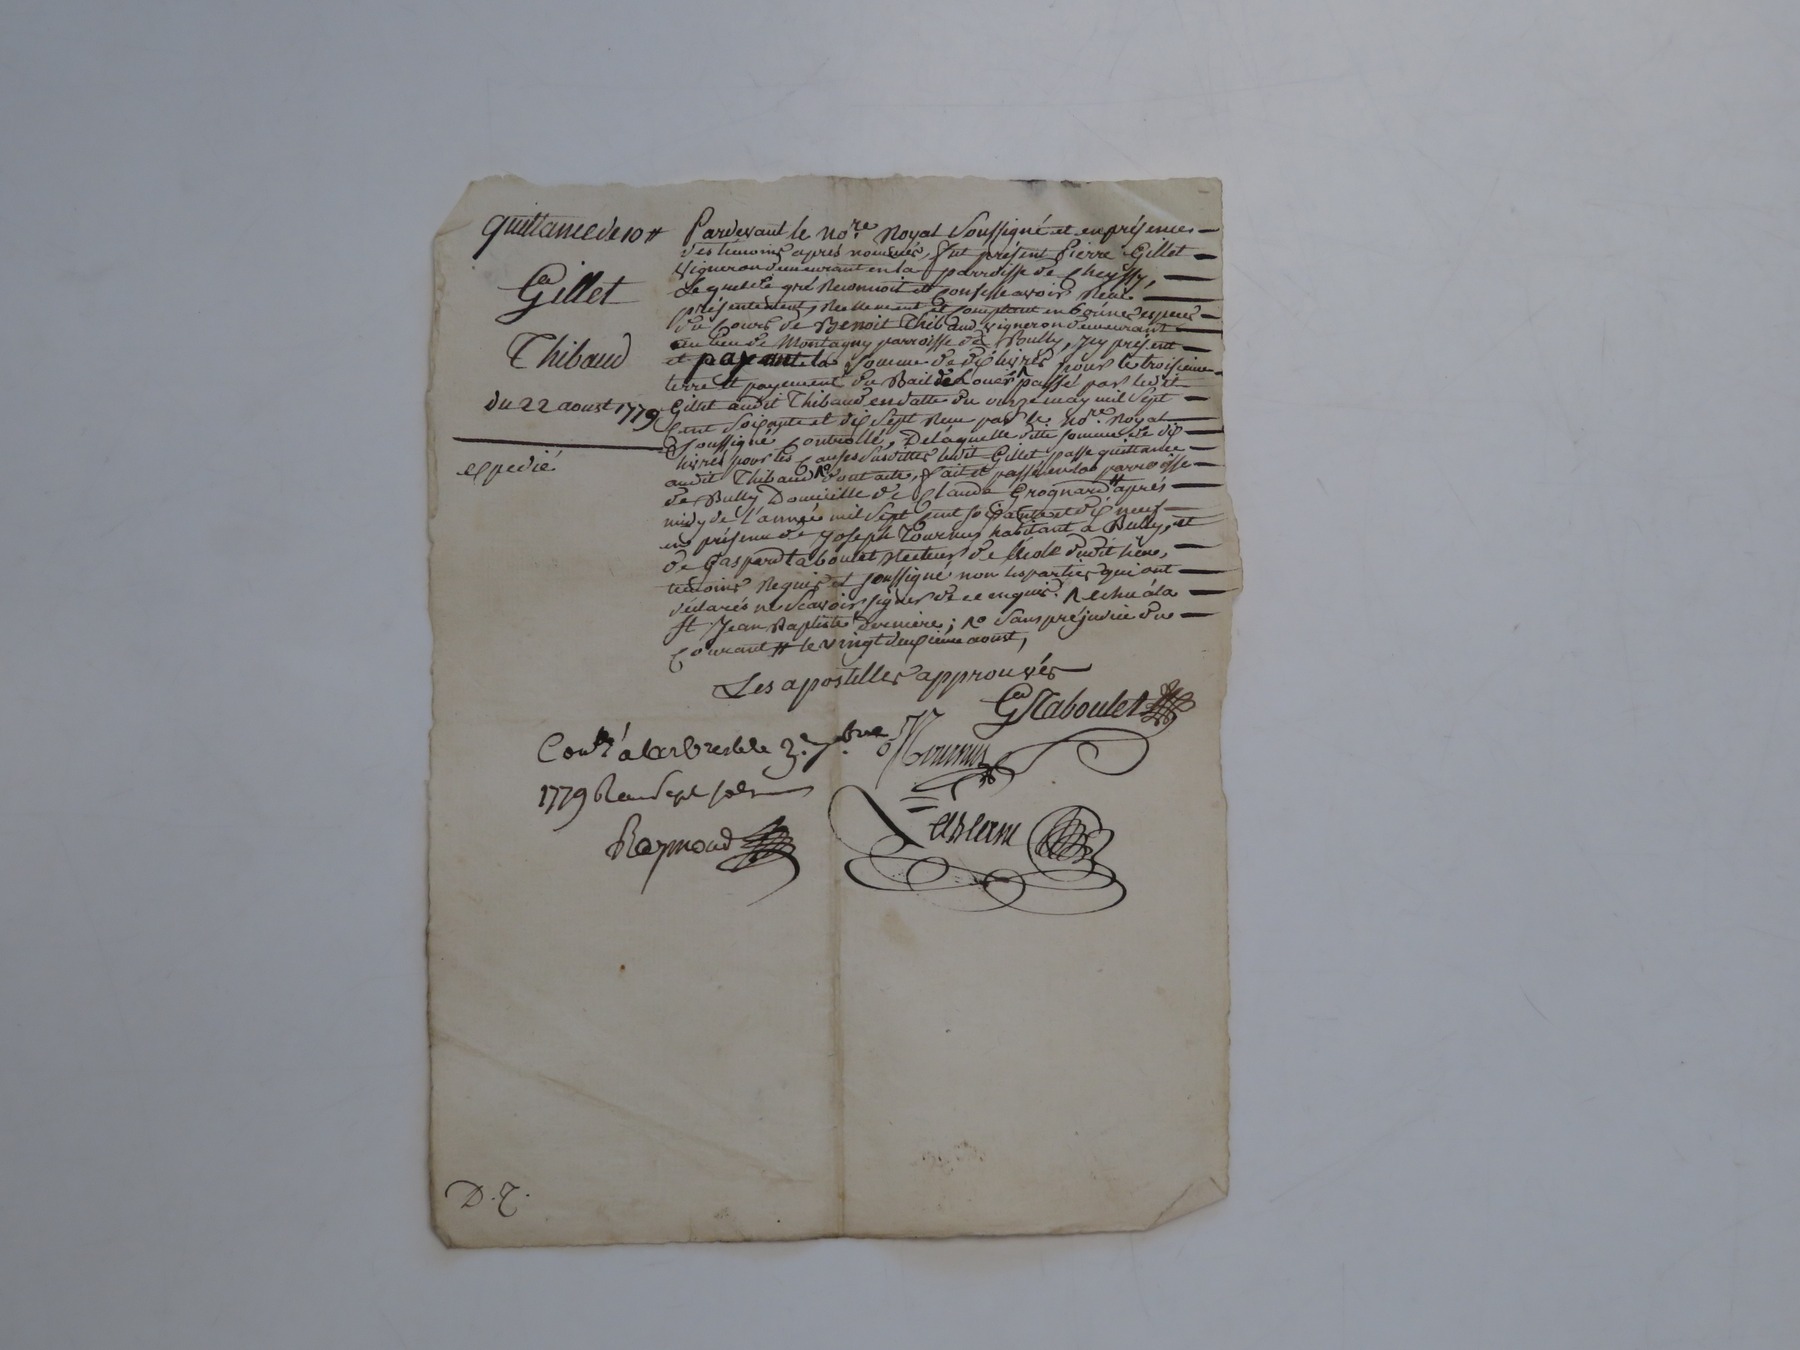 quittance de 10 ₶
Gillet
a
Thibaud
du 22 aoust 1779
expedié
Pardevant le no.re Royal soussigné et en présence
des temoins après nommés, fut présent Pierre Gillet
vigneron demeurant en la parroisse de Cheyssy,
Lequel de gré Reconnoit et confesse avoir Reçu
présentement, Réellement et comptant en bonnes espèces
du cours de Benoit Thibaud vigneron demeurant
au lieu de Montagny parroisse de Bully, icy présent
et payant la somme de dix livres pour le troisieme
terme et payement du Bail de Louer ^ passé par ledit
Gillet audit Thibaud en datte du onze may mil sept
cent soixante et dix sept Reçu par le no.re Royal
soussigné Controllé, De laquelle ditte somme de dix
livres pour les causes susdittes ledit Gillet passe quittance
audit Thibaud dont acte, fait et passé en la parroisse
de Bully Domicille de Claude Grognard # après
midy de l'année mil sept cent soixante et dix neuf
en présence de Joseph Tournus habitant a Bully, et
de Gaspard taboulet Recteur de l'école dudit lieu,
temoins Requis et soussigné non les parties qui ont
déclarés ne sçavoir signer de ce enquis. ^ echu à la
St. Jean Baptiste derniere; sans préjudice du
courant # le vingt deuxieme aoust,
Les apostilles approuvées
G Taboulet
Tournus
Conté à Larbresle le 3e 7.bre
1779 Reçu sept sols
Raymond
D. T.